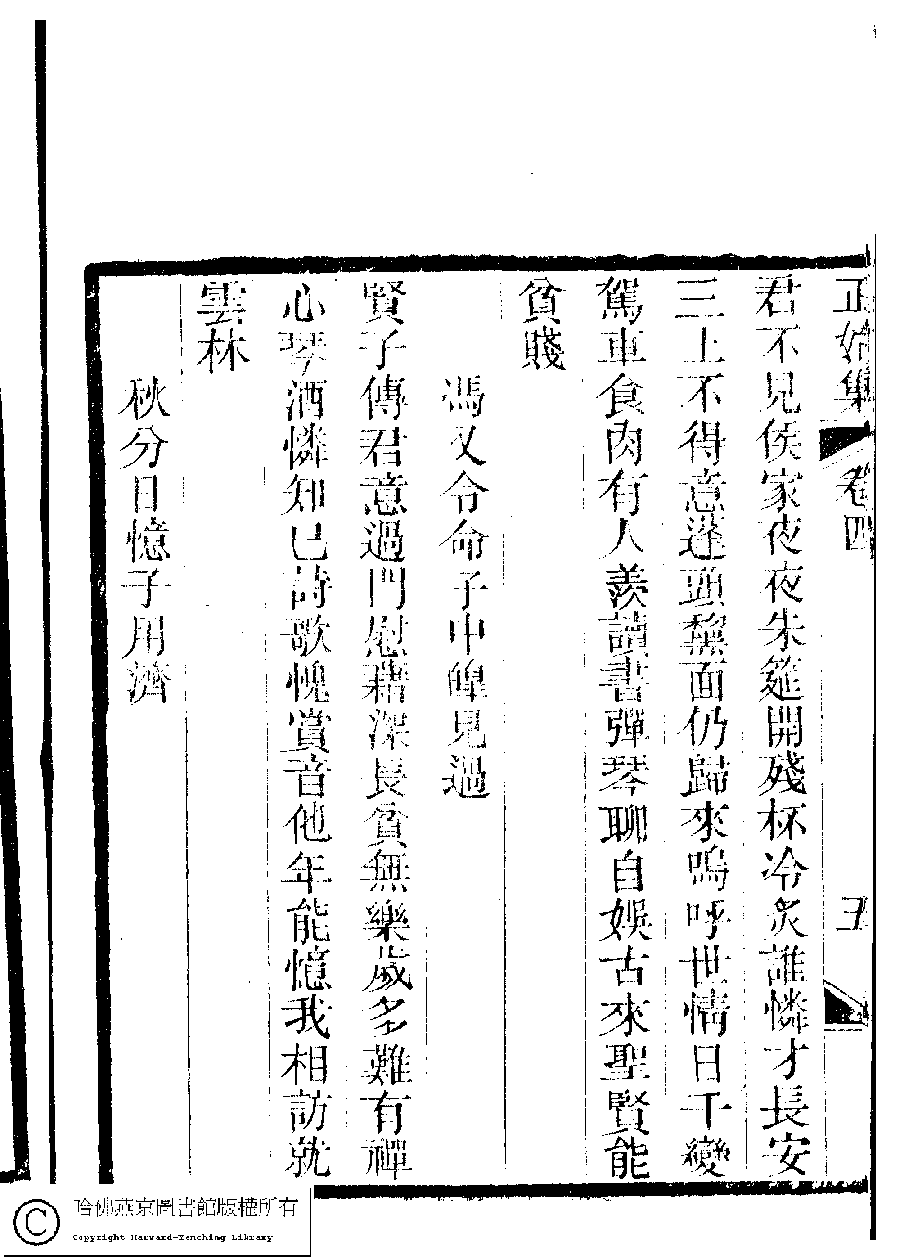 正始集 卷四 五
君不見侯家夜夜朱筵開殘杯冷炙誰憐才長安
三上不得意蓬頭黧面仍歸來嗚呼世情日千變
駕車食肉有人羨讀書彈琴聊自娛古來聖賢能
貧賤
馮又令命子中皥見過
賢子傳君意過門慰藉深長貧無樂歲多難有禪
心琴酒憐知己詩歌愧賞音他年能憶我相訪就
雲林
秋分日憶子用濟
哈佛燕京圖書館版權所有
Copyright Harvard-Yenching Library